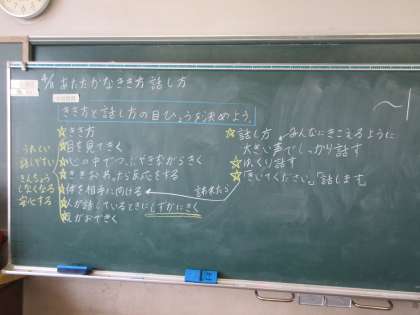 あたたかなきき方 話し方
きき方と話し方の目ひょうを決めよう
きき方
目を見てきく
心の中でつぶやきながらきく
ききおわったら反応をする
体を相手に向ける
人が話しているときにしずかにきく
えがおできく
うれしい
話しやすい
きんちょう
しなくなる
安心する
話し方 みんなにきこえるように
大きい声でしっかり話す
ゆっくり話す
「きいてください。」「話します。」